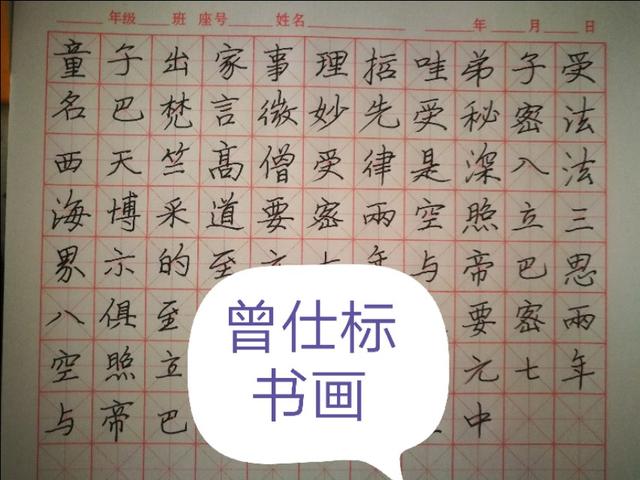 年级 班 座号 姓名 年 月 日
童子出家事理括哇弟子受
名巴梵言微妙先受秘密法
西天竺高僧受律是深入法
海博采道要密兩空照立三
界示的至元七年与帝巴思
八俱至 要密兩
空照立 元七年
与帝巴 中
曾仕标
书画